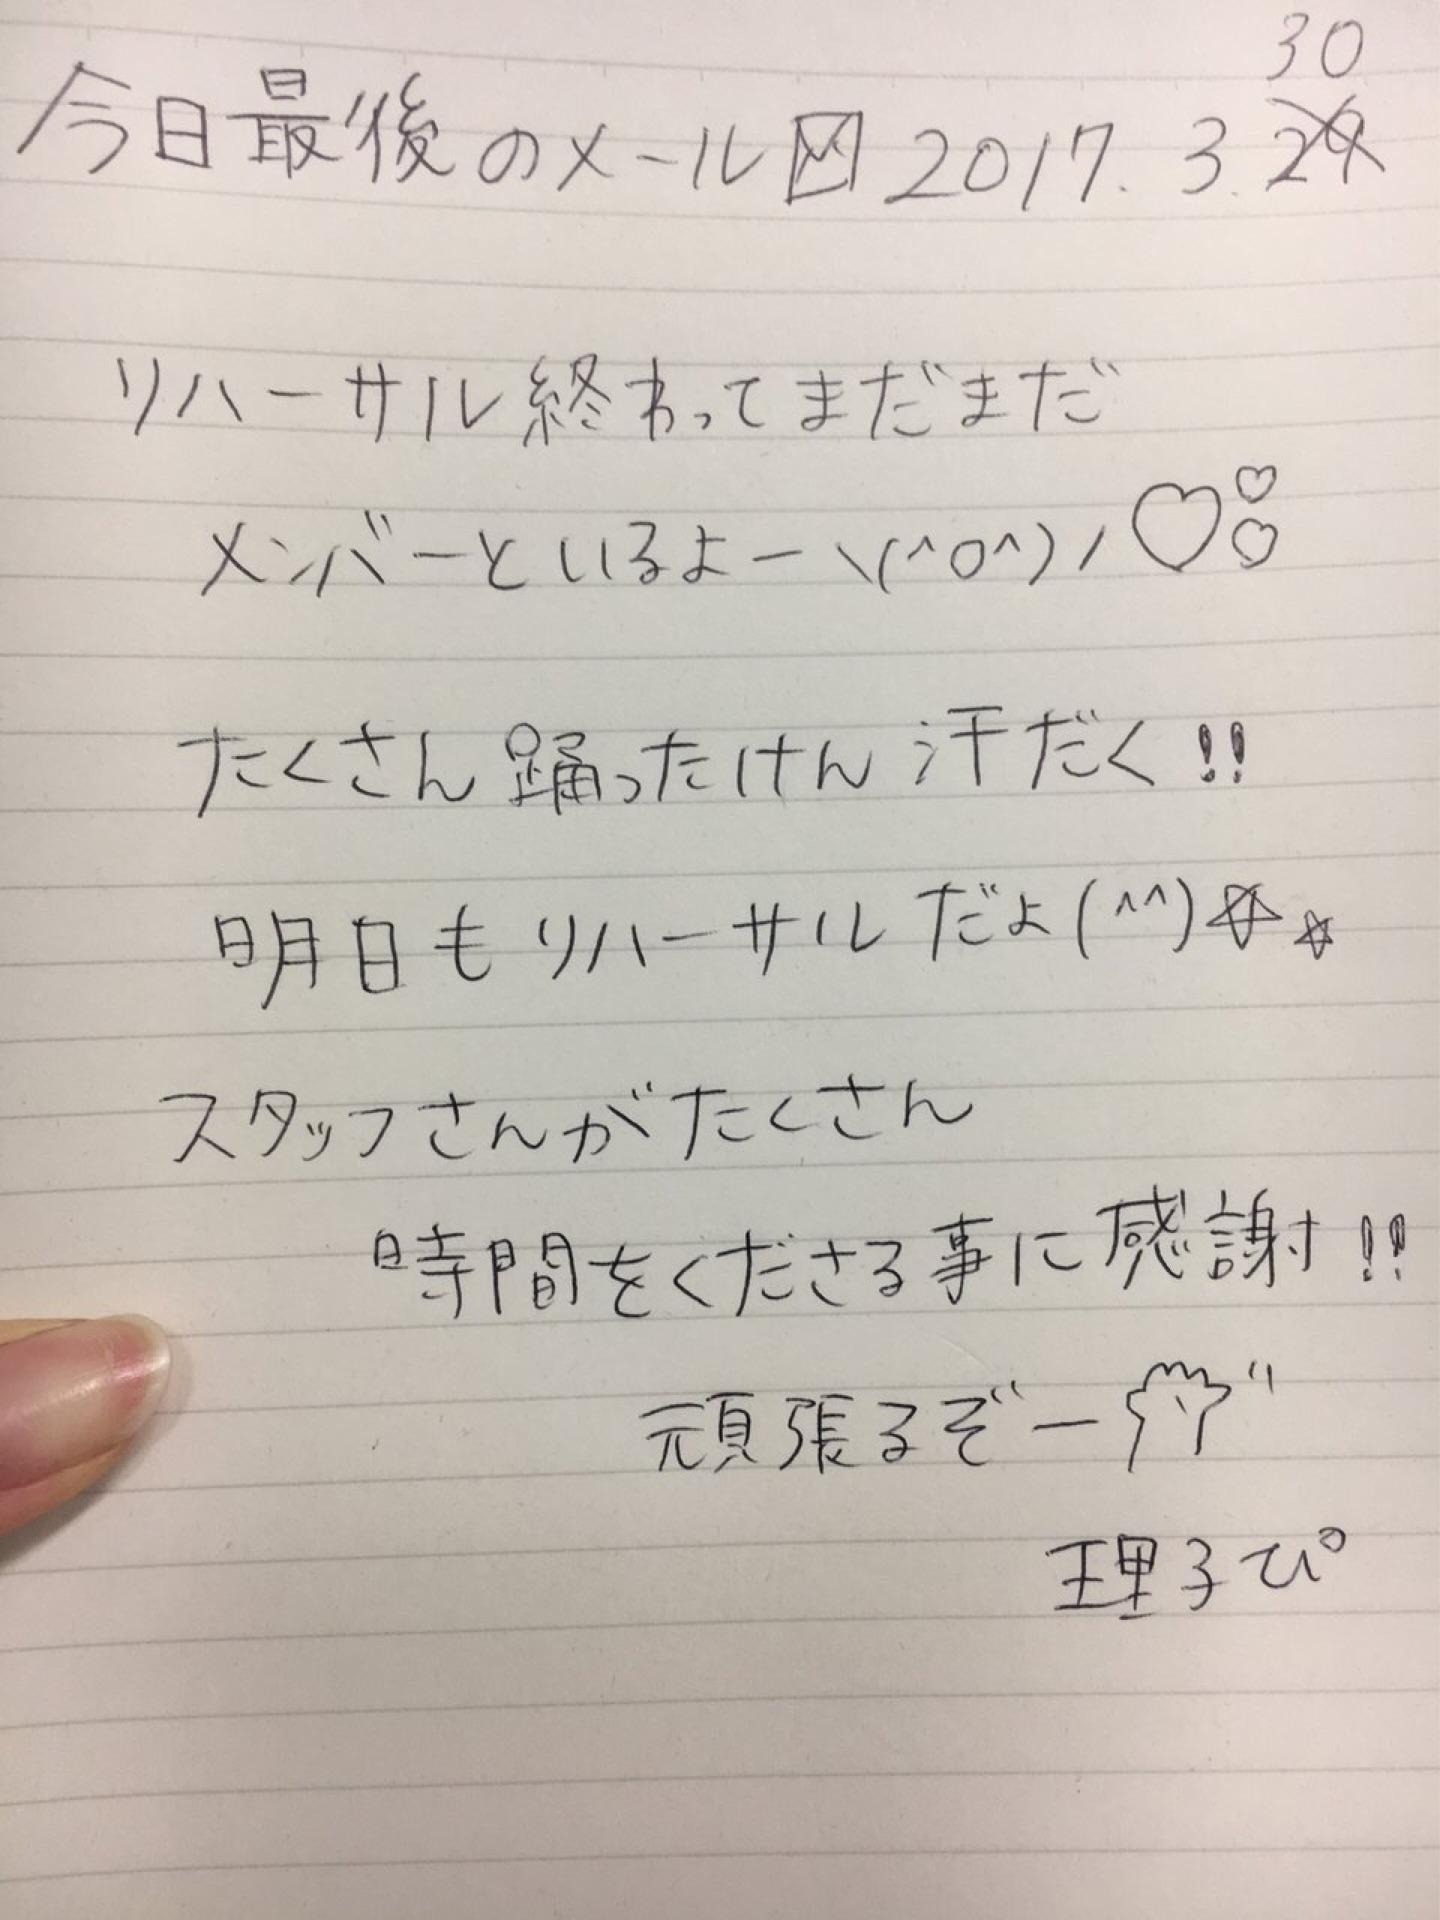 今日最後のメール✉ 2017. 3. 30
リハーサル終わってまだまだ
メンバーといるよー\(^o^)/♡♡♡
たくさん踊ったけん汗だく!!
明日もリハーサルだよ(^^)☆☆
スタッフさんがたくさん
時間をくださる事に感謝!!
頑張るぞー
理子ぴ